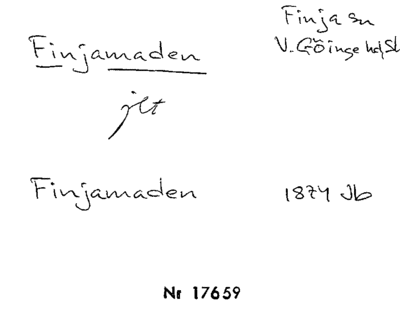 Finjamaden
Finja sn
V. Göinge hd, Sk
jlt
Finjamaden 1874 Jb
Nr 17659